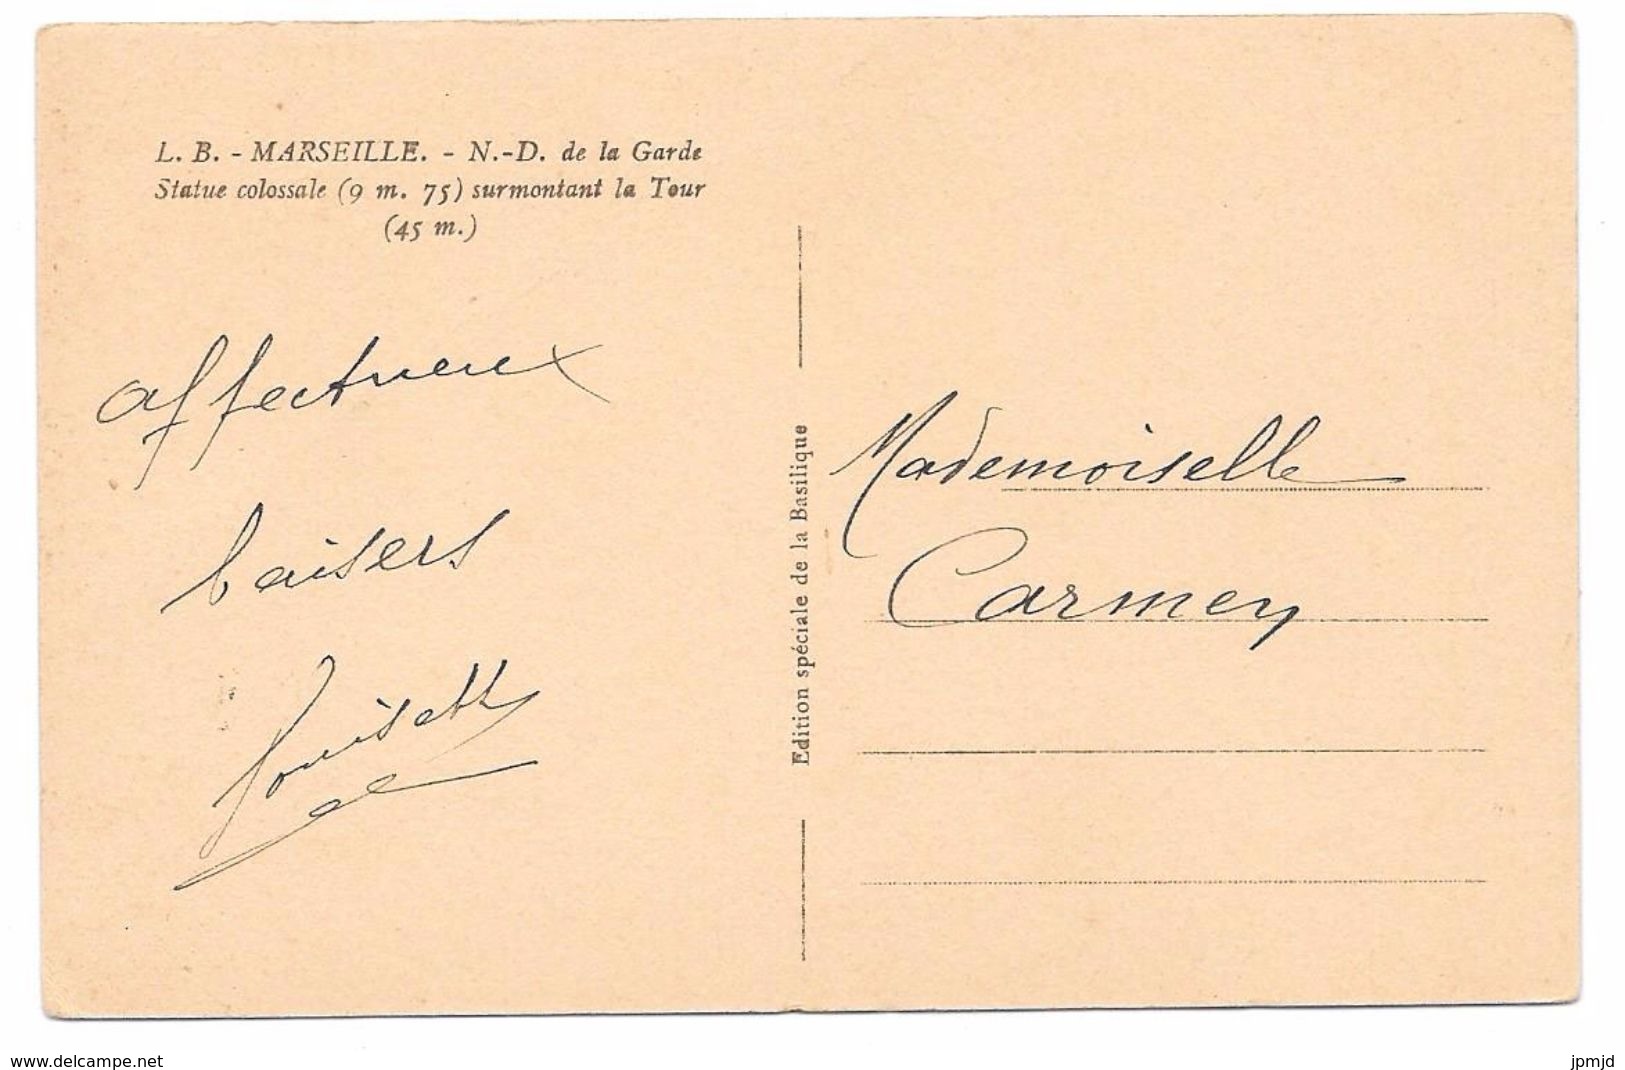 L. B. - MARSEILLE. - N.-D. de la Garde
Statue colossale (9 m. 75) surmontant la Tour
(45 m.)
affectueux
baisers
Louisette
Edition spéciale de la Basilique
Mademoiselle
Carmen
www.delcampe.net
jpmjd